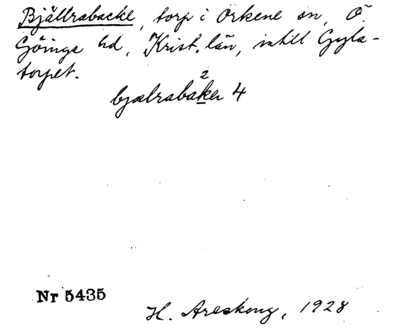 Bjällrabacke, torp i Örkene sn, Ö
Göinge hd, Krist. län, intill Gyla-
torpet.
2
bjælrabakər 4
Nr 5435
H. Areskoug, 1928